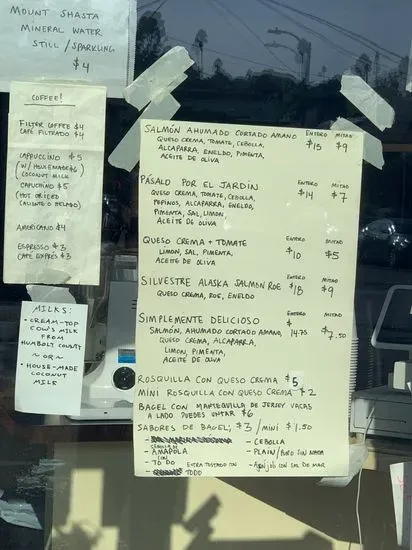 MOUNT SHASTA
MINERAL WATER
STILL / SPARKLING
$4
COFFEE!
FILTER COFFEE $4
CAFÉ FILTRADO $4
CAPPUCCINO $5
(W/ HOUSEMADE $6)
(COCONUT MILK
CAPUCHINO $5
(HOT OR ICED
CALIENTE O HELADO)
AMERICANO $4
ESPRESSO $3
CAFÉ EXPRÉS $3
MILKS:
- CREAM-TOP
COW'S MILK
FROM
HUMBOLT COUNTY
~ OR ~
- HOUSE-MADE
COCONUT
MILK
SALMÓN AHUMADO CORTADO A MANO ENTERO $15 MITAD $9
QUESO CREMA, TOMATE, CEBOLLA,
ALCAPARRA, ENELDO, PIMENTA,
ACEITE DE OLIVA
PÁSALO POR EL JARDÍN ENTERO $14 MITAD $7
QUESO CREMA, TOMATE, CEBOLLA,
PEPINOS, ALCAPARRA, ENELDO,
PIMENTA, SAL, LIMON,
ACEITE DE OLIVA
QUESO CREMA + TOMATE ENTERO $10 MITAD $5
LIMON, SAL, PIMENTA,
ACEITE DE OLIVA
SILVESTRE ALASKA SALMON ROE ENTERO $18 MITAD $9
QUESO CREMA, ROE, ENELDO
SIMPLEMENTE DELICIOSO ENTERO $14.75 MITAD $7.50
SALMÓN, AHUMADO CORTADO A MANO,
QUESO CREMA, ALCAPARRA,
LIMON, PIMENTA,
ACEITE DE OLIVA
ROSQUILLA CON QUESO CREMA $5
MINI ROSQUILLA CON QUESO CREMA $2
BAGEL CON MANTEQUILLA DE JERSEY VACAS
A LADO PUEDES UNTAR $6
SABORES DE BAGEL, $3 / MINI $1.50
- CEBOLLA
- AMAPOLA
- PLAIN / PURO SIN NADA
- TODO EXTRA TOSTADO CON
- Ajonjoli con SAL DE MAR
TODO